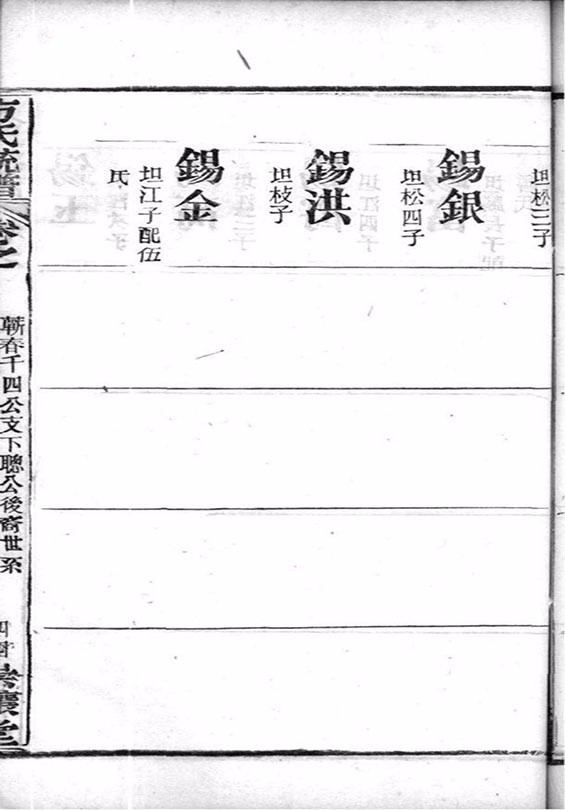 坦松三子
錫銀
坦松四子
錫洪
坦枝子
錫金
坦江子配伍
氏
方氏統譜
卷之
蘄春千四公支下聰公後裔世系